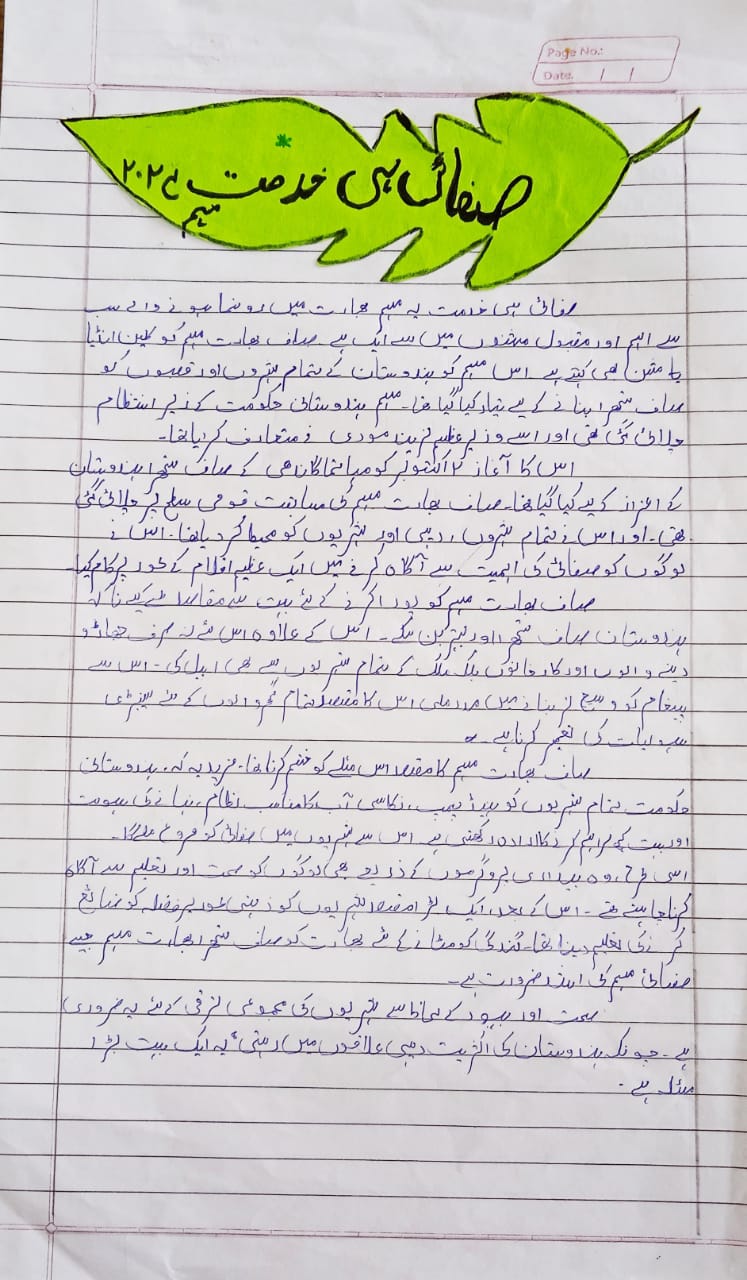 Page No.:
Date. / /
صفائی ہی خدمت
مہم
صفائی ہی خدمت یہ مہم بھارت میں رونما ہونے والے سب
سے اہم اور مقبول مشنوں میں سے ایک ہے۔ صاف بھارت مہم کو کلین انڈیا
یا مشن بھی کہتے ہے اس مہم کو ہندوستان کے تمام شہروں اور قصبوں کو
صاف ستھرا بنانے کے لیے تیار کیا گیا تھا۔ مہم ہندوستانی حکومت کے زیر انتظام
چلائی گئی تھی اور اسے وزیر عظیم نریندر مودی نے متعارف کرایا تھا۔
اس کا آغاز ۲ اکتوبر کو مہاتما گاندھی کے صاف ستھرا ہندوستان
کے اعزاز کے لیے کیا گیا تھا۔ صاف بھارت مہم کی قومی سطح پر چلائی گئی
تھی۔ اور اس نے تمام شہروں، دیہی اور شہریوں کو محیط کر دیا تھا۔ اس نے
لوگوں کو صفائی کی اہمیت سے آگاہ کرنے میں ایک عظیم اقدام کے طور پر کام کیا۔
صاف بھارت مہم کو پورا کرنے کے لئے بہت سے مقاصد طے کیے تاکہ
ہندوستان صاف ستھرا اور بہتر بن سکے۔ اس کے علاوہ اس نے نہ صرف جھاڑو
دینے والوں اور کارخانوں بلکہ ملک کے تمام شہریوں سے بھی اپیل کی۔ اس سے
پیغام کو وسیع تر بنانے میں مدد ملی اس کا مقصد تمام گھر والوں کے لئے سینٹری
سہولیات کی تعمیر کرنا ہے۔
صاف بھارت مہم کا مقصد اس مسئلے کو ختم کرنا تھا۔ مزید یہ کہ، ہندوستانی
حکومت تمام شہریوں کو ہینڈ پمپ، نکاسی آب کا مناسب نظام، نہانے کی سہولت
اور بہت کچھ فراہم کرنے کا ارادہ رکھتی ہے۔ اس سے شہریوں میں صفائی کو فروغ ملے گا۔
اسی طرح وہ بیداری پروگرموں کے ذریعے بھی لوگوں کو صحت اور تعلیم سے آگاہ
کرنا چاہتے تھے۔ اس کے بعد، ایک بڑا مقصد شہریوں کو ذہنی طور پر فضلہ کو ضائع
کرنے کی تعلیم دینا تھا۔ گندگی کو مٹانے کے لئے بھارت کو صاف ستھرا بھارت مہم جیسے
صفائی مہم کی اشد ضرورت ہے۔
صحت اور بہبود کے لحاظ سے شہریوں کی مجموعی ترقی کے لئے یہ ضروری
ہے۔ چونکہ ہندوستان کی اکثریت دیہی علاقوں میں رہتی، یہ ایک بہت بڑا
مسئلہ ہے۔